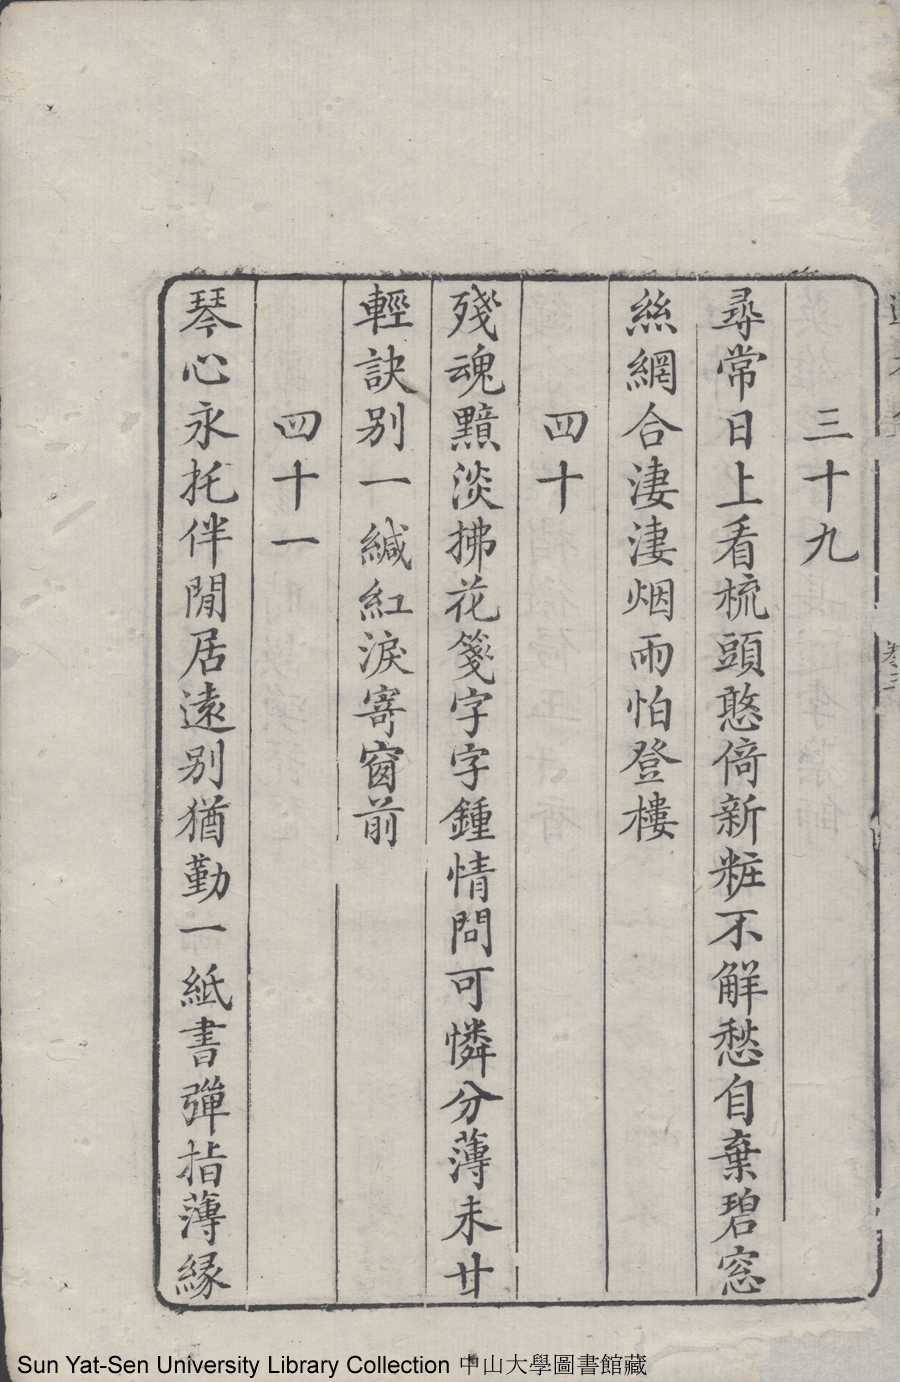 三十九
尋常日上看梳頭憨倚新粧不解愁自棄碧窓
絲網合淒淒烟雨怕登樓
四十
殘魂黯淡拂花箋字字鍾情問可憐分薄未甘
輕訣别一緘紅淚寄窗前
四十一
琴心永托伴閒居遠别猶勤一紙書彈指薄緣
Sun Yat-Sen University Library Collection 中山大學圖書館藏